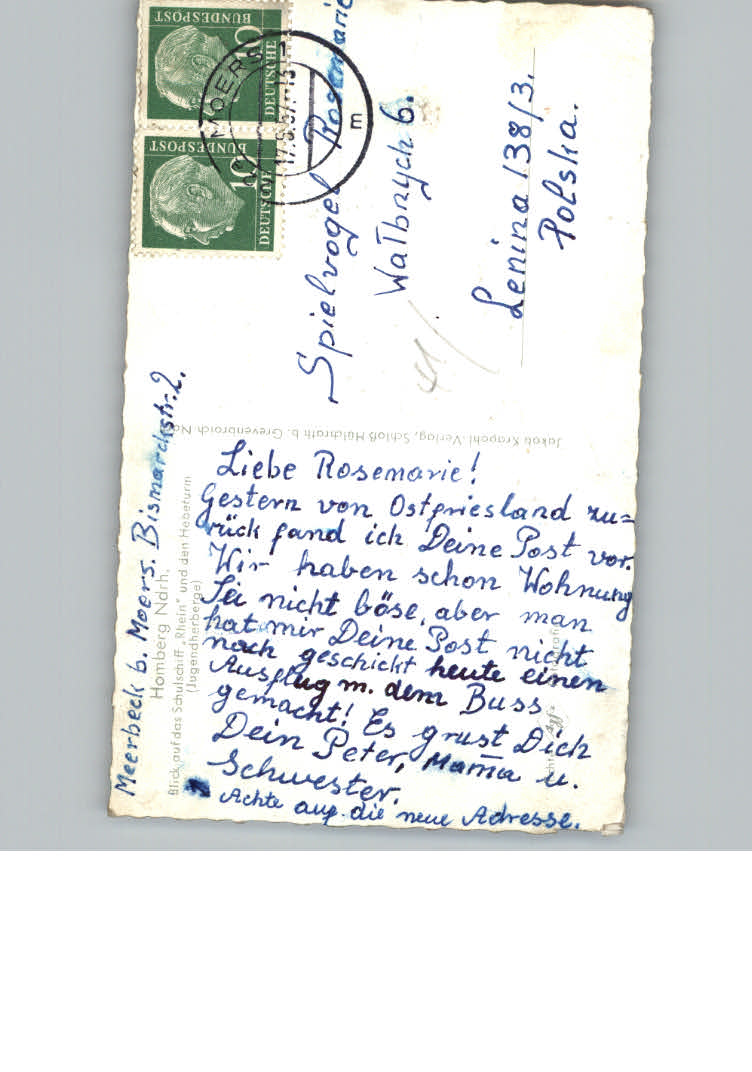 Meerbeck b. Moers. Bismarckstr. 2.
Homberg Ndrh.
Blick auf das Schulschiff „Rhein" und den Hebeturm
(Jugendherberge)
Liebe Rosemarie!
Gestern von Ostfriesland zu=
rück fand ich Deine Post vor.
Wir haben schon Wohnung
Sei nicht böse, aber man
hat mir Deine Post nicht
nach geschickt heute einen
Ausflug m. dem Buss
gemacht! Es grust Dich
Dein Peter, Mama u.
Schwester.
Achte auf die neue Adresse.
Jakob Krapohl-Verlag, Schloß Hülchrath b. Grevenbroich
Spielvogel Rosemarie
Wałbrzych 6.
Lenina 138/3.
Polska.
DEUTSCHE
BUNDESPOST
10
DEUTSCHE
BUNDESPOST
10
MOERS 1
m